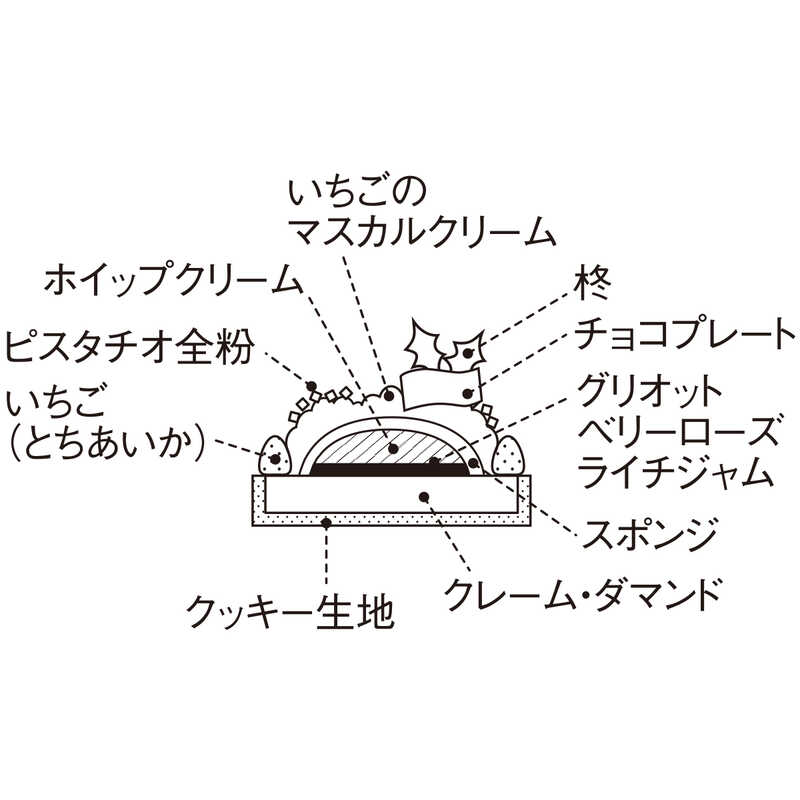 いちごの
マスカルクリーム
ホイップクリーム
ピスタチオ全粉
いちご
（とちあいか）
柊
チョコプレート
グリオット
ベリーローズ
ライチジャム
スポンジ
クレーム・ダマンド
クッキー生地